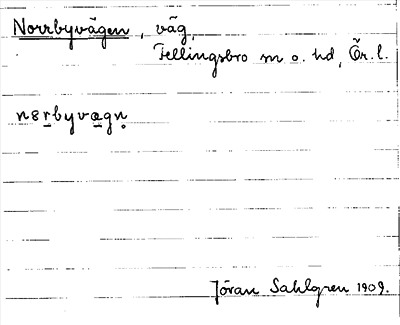 Norrbyvägen, väg,
Fellingsbro sn o. hd, Ör. l.
nɜrbyvægn̥
Jöran Sahlgren 1909.